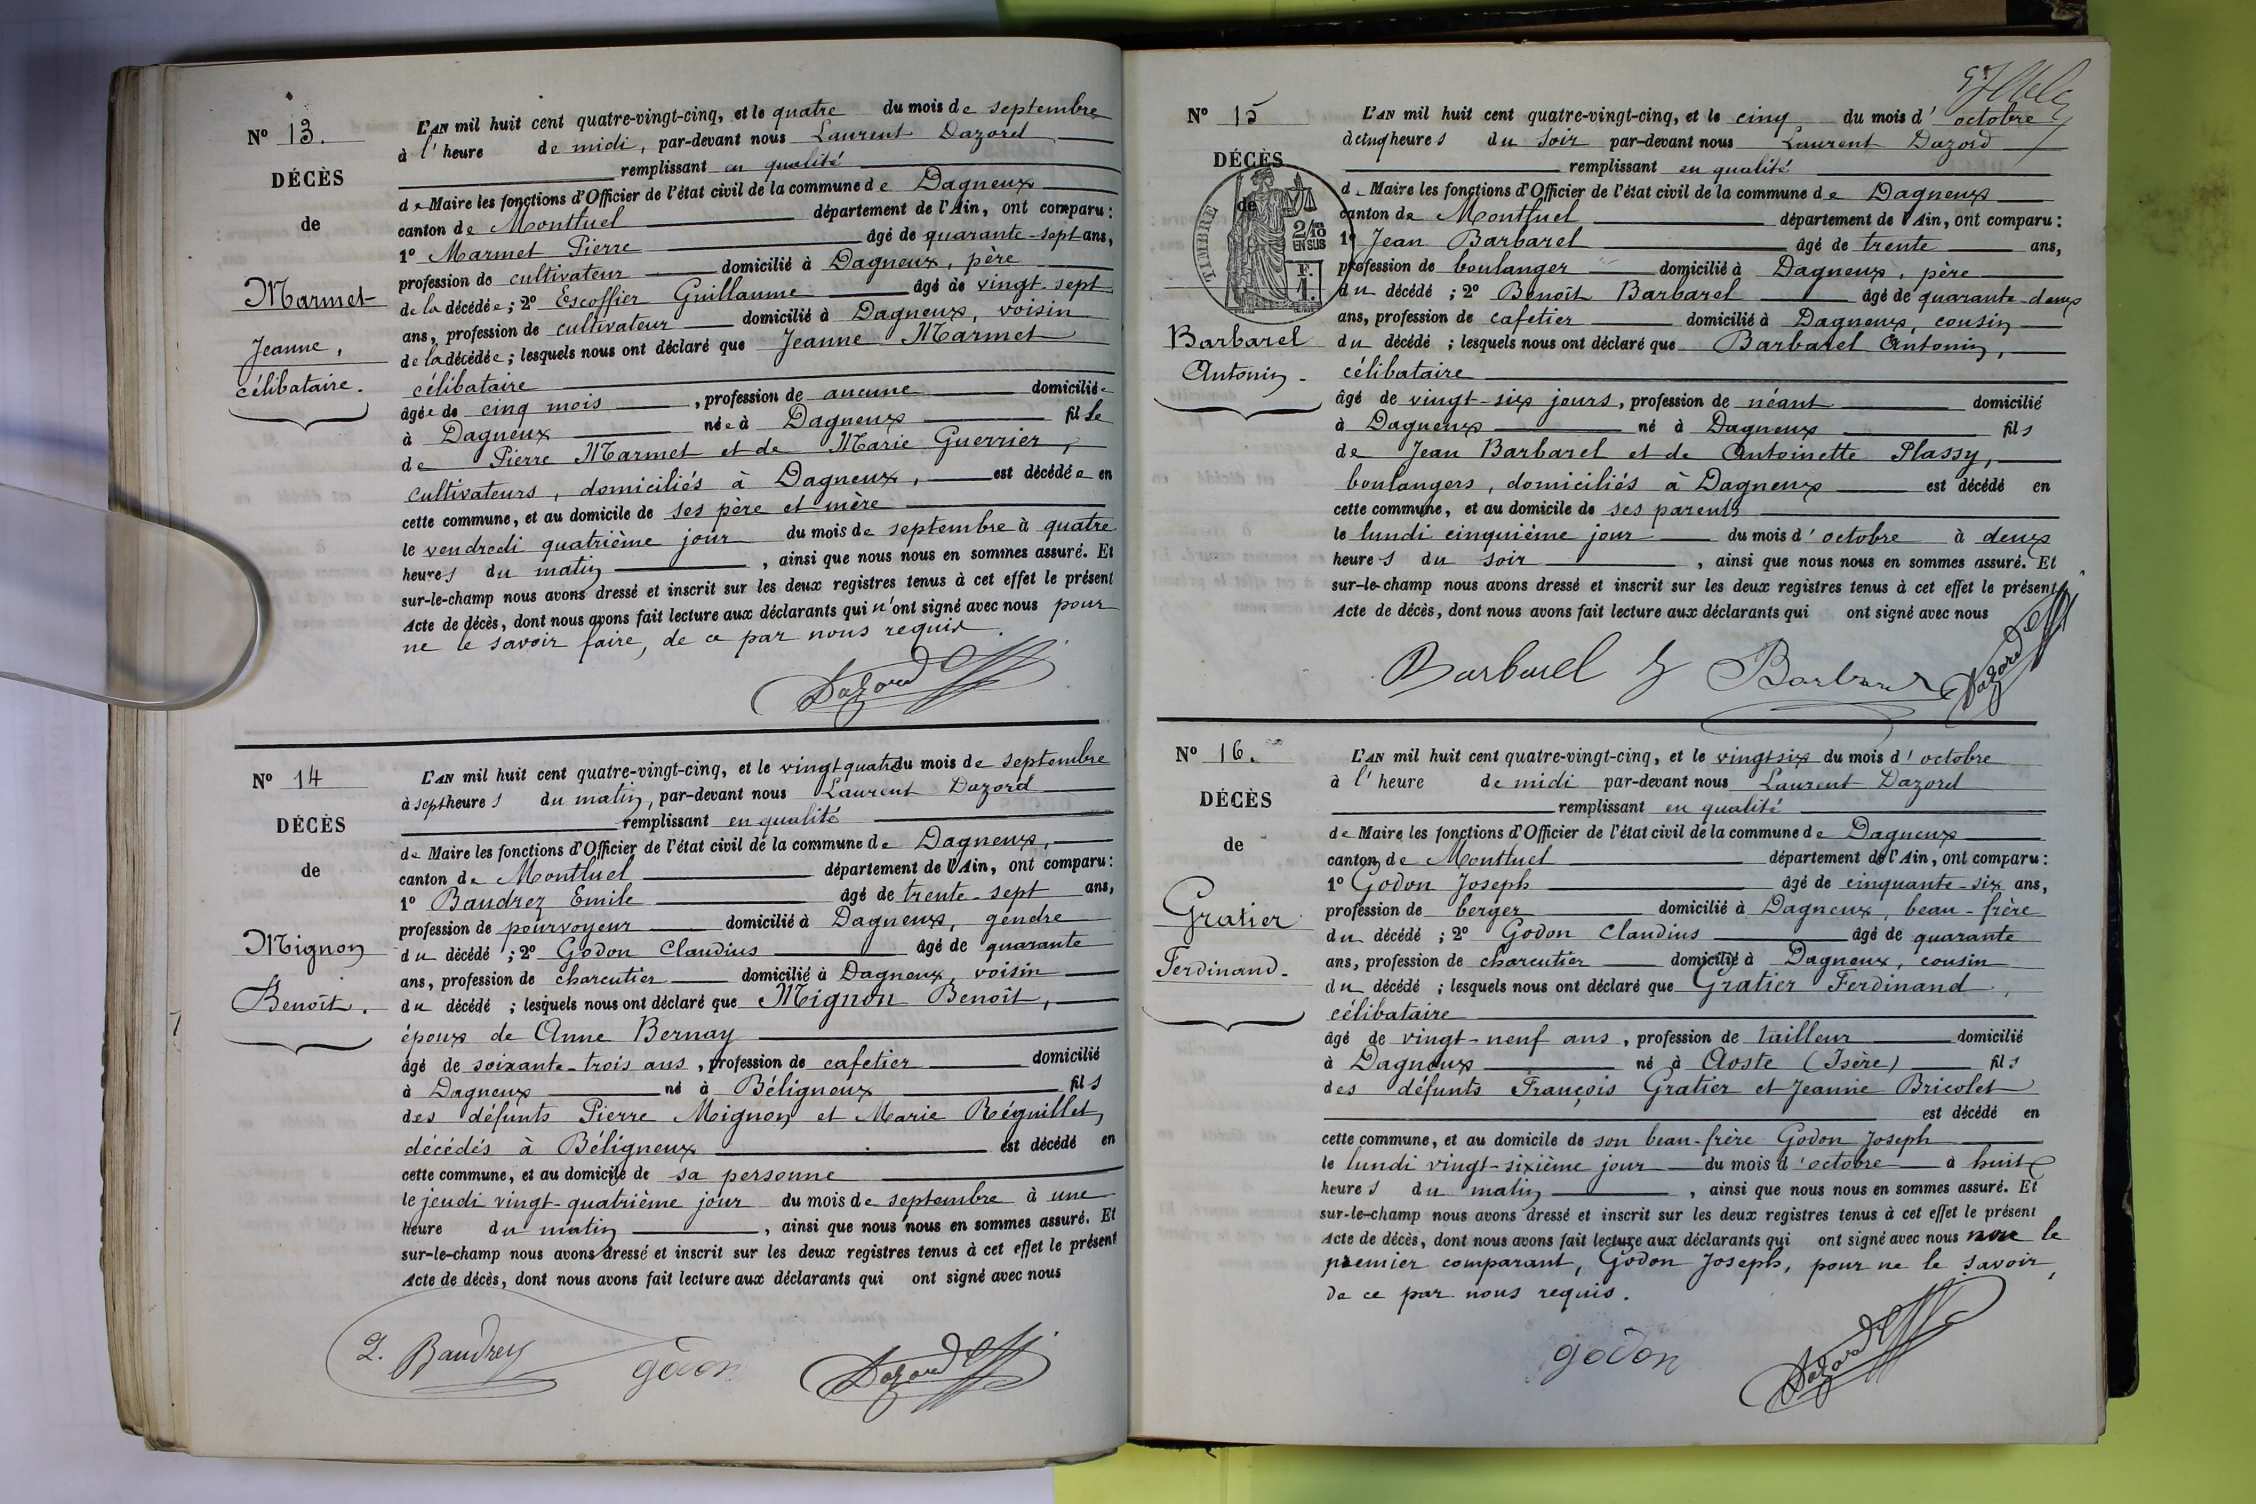 N° 13.
DÉCÈS
de
Marmet
Jeanne,
célibataire.
L'AN mil huit cent quatre-vingt-cinq, et le quatre du mois de septembre
à l'heure de midi, par-devant nous Laurent Dazord
remplissant en qualité
de Maire les fonctions d'Officier de l'état civil de la commune de Dagneux
canton de Montluel département de l'Ain, ont comparu :
1° Marmet Pierre âgé de quarante-sept ans,
profession de cultivateur domicilié à Dagneux, père
de la décédée ; 2° Escoffier Guillaume âgé de vingt-sept
ans, profession de cultivateur domicilié à Dagneux, voisin
de la décédée ; lesquels nous ont déclaré que Jeanne Marmet
célibataire
âgée de cinq mois, profession de aucune domiciliée
à Dagneux née à Dagneux fille
de Pierre Marmet et de Marie Guerrier,
cultivateurs, domiciliés à Dagneux, est décédée en
cette commune, et au domicile de ses père et mère
le vendredi quatrième jour du mois de septembre à quatre
heures du matin, ainsi que nous nous en sommes assuré. Et
sur-le-champ nous avons dressé et inscrit sur les deux registres tenus à cet effet le présent
Acte de décès, dont nous avons fait lecture aux déclarants qui n'ont signé avec nous pour
ne le savoir faire, de ce par nous requis.
Dazord
N° 14
DÉCÈS
de
Mignon
Benoît.
L'AN mil huit cent quatre-vingt-cinq, et le vingt quatre du mois de septembre
à sept heures du matin, par-devant nous Laurent Dazord
remplissant en qualité
de Maire les fonctions d'Officier de l'état civil de la commune de Dagneux,
canton de Montluel département de l'Ain, ont comparu :
1° Baudrez Emile âgé de trente-sept ans,
profession de pourvoyeur domicilié à Dagneux, gendre
du décédé ; 2° Godon Claudius âgé de quarante
ans, profession de charcutier domicilié à Dagneux, voisin
du décédé ; lesquels nous ont déclaré que Mignon Benoît,
époux de Anne Bernay
âgé de soixante-trois ans, profession de cafetier domicilié
à Dagneux né à Béligneux fils
des défunts Pierre Mignon et Marie Réguillet,
décédés à Béligneux est décédé en
cette commune, et au domicile de sa personne
le jeudi vingt-quatrième jour du mois de septembre à une
heure du matin, ainsi que nous nous en sommes assuré. Et
sur-le-champ nous avons dressé et inscrit sur les deux registres tenus à cet effet le présent
Acte de décès, dont nous avons fait lecture aux déclarants qui ont signé avec nous
Baudrez godon Dazord
N° 15
DÉCÈS
de
TIMBRE
2/10 EN SUS
F. 1.
Barbarel
Antonin.
L'AN mil huit cent quatre-vingt-cinq, et le cinq du mois d'octobre
à cinq heures du soir par-devant nous Laurent Dazord
remplissant en qualité
de Maire les fonctions d'Officier de l'état civil de la commune de Dagneux
canton de Montluel département de l'Ain, ont comparu :
1° Jean Barbarel âgé de trente ans,
profession de boulanger domicilié à Dagneux, père
du décédé ; 2° Benoît Barbarel âgé de quarante-deux
ans, profession de cafetier domicilié à Dagneux, cousin
du décédé ; lesquels nous ont déclaré que Barbarel Antonin,
célibataire
âgé de vingt-six jours, profession de néant domicilié
à Dagneux né à Dagneux fils
de Jean Barbarel et de Antoinette Plassy,
boulangers, domiciliés à Dagneux est décédé en
cette commune, et au domicile de ses parents
le lundi cinquième jour du mois d'octobre à deux
heures du soir, ainsi que nous nous en sommes assuré. Et
sur-le-champ nous avons dressé et inscrit sur les deux registres tenus à cet effet le présent
Acte de décès, dont nous avons fait lecture aux déclarants qui ont signé avec nous
Barbarel Barbarel Dazord
N° 16.
DÉCÈS
de
Gratier
Ferdinand.
L'AN mil huit cent quatre-vingt-cinq, et le vingt six du mois d'octobre
à l'heure de midi par-devant nous Laurent Dazord
remplissant en qualité
de Maire les fonctions d'Officier de l'état civil de la commune de Dagneux
canton de Montluel département de l'Ain, ont comparu :
1° Godon Joseph âgé de cinquante-six ans,
profession de berger domicilié à Dagneux, beau-frère
du décédé ; 2° Godon Claudius âgé de quarante
ans, profession de charcutier domicilié à Dagneux, cousin
du décédé ; lesquels nous ont déclaré que Gratier Ferdinand,
célibataire
âgé de vingt-neuf ans, profession de tailleur domicilié
à Dagneux né à Aoste (Isère) fils
des défunts François Gratier et Jeanne Bricolet
est décédé en
cette commune, et au domicile de son beau-frère Godon Joseph
le lundi vingt-sixième jour du mois d'octobre à huit
heures du matin, ainsi que nous nous en sommes assuré. Et
sur-le-champ nous avons dressé et inscrit sur les deux registres tenus à cet effet le présent
Acte de décès, dont nous avons fait lecture aux déclarants qui ont signé avec nous non le
premier comparant, Godon Joseph, pour ne le savoir,
de ce par nous requis.
godon Dazord